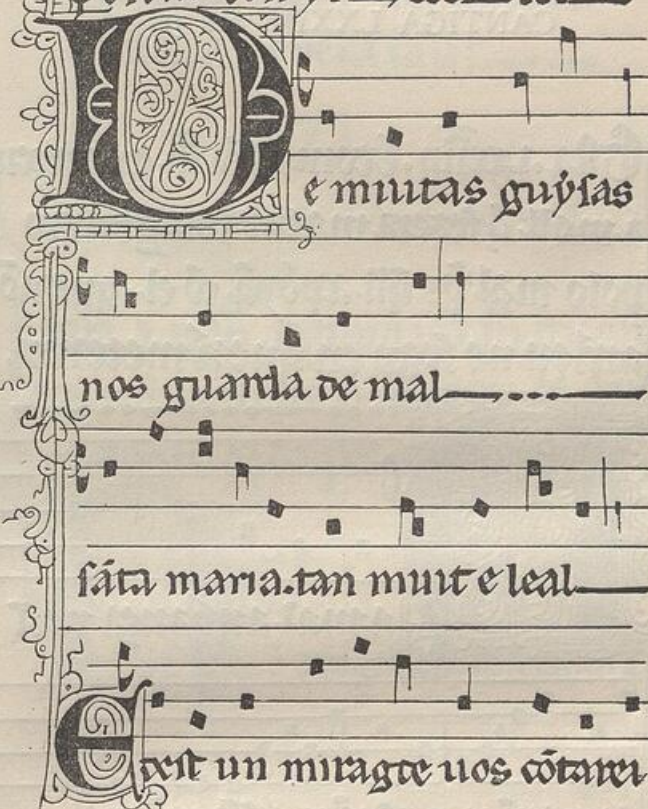 De muitas guysas
nos guarda de mal
sãta maria. tan muit e leal
E dest un miragre uos cõtarei